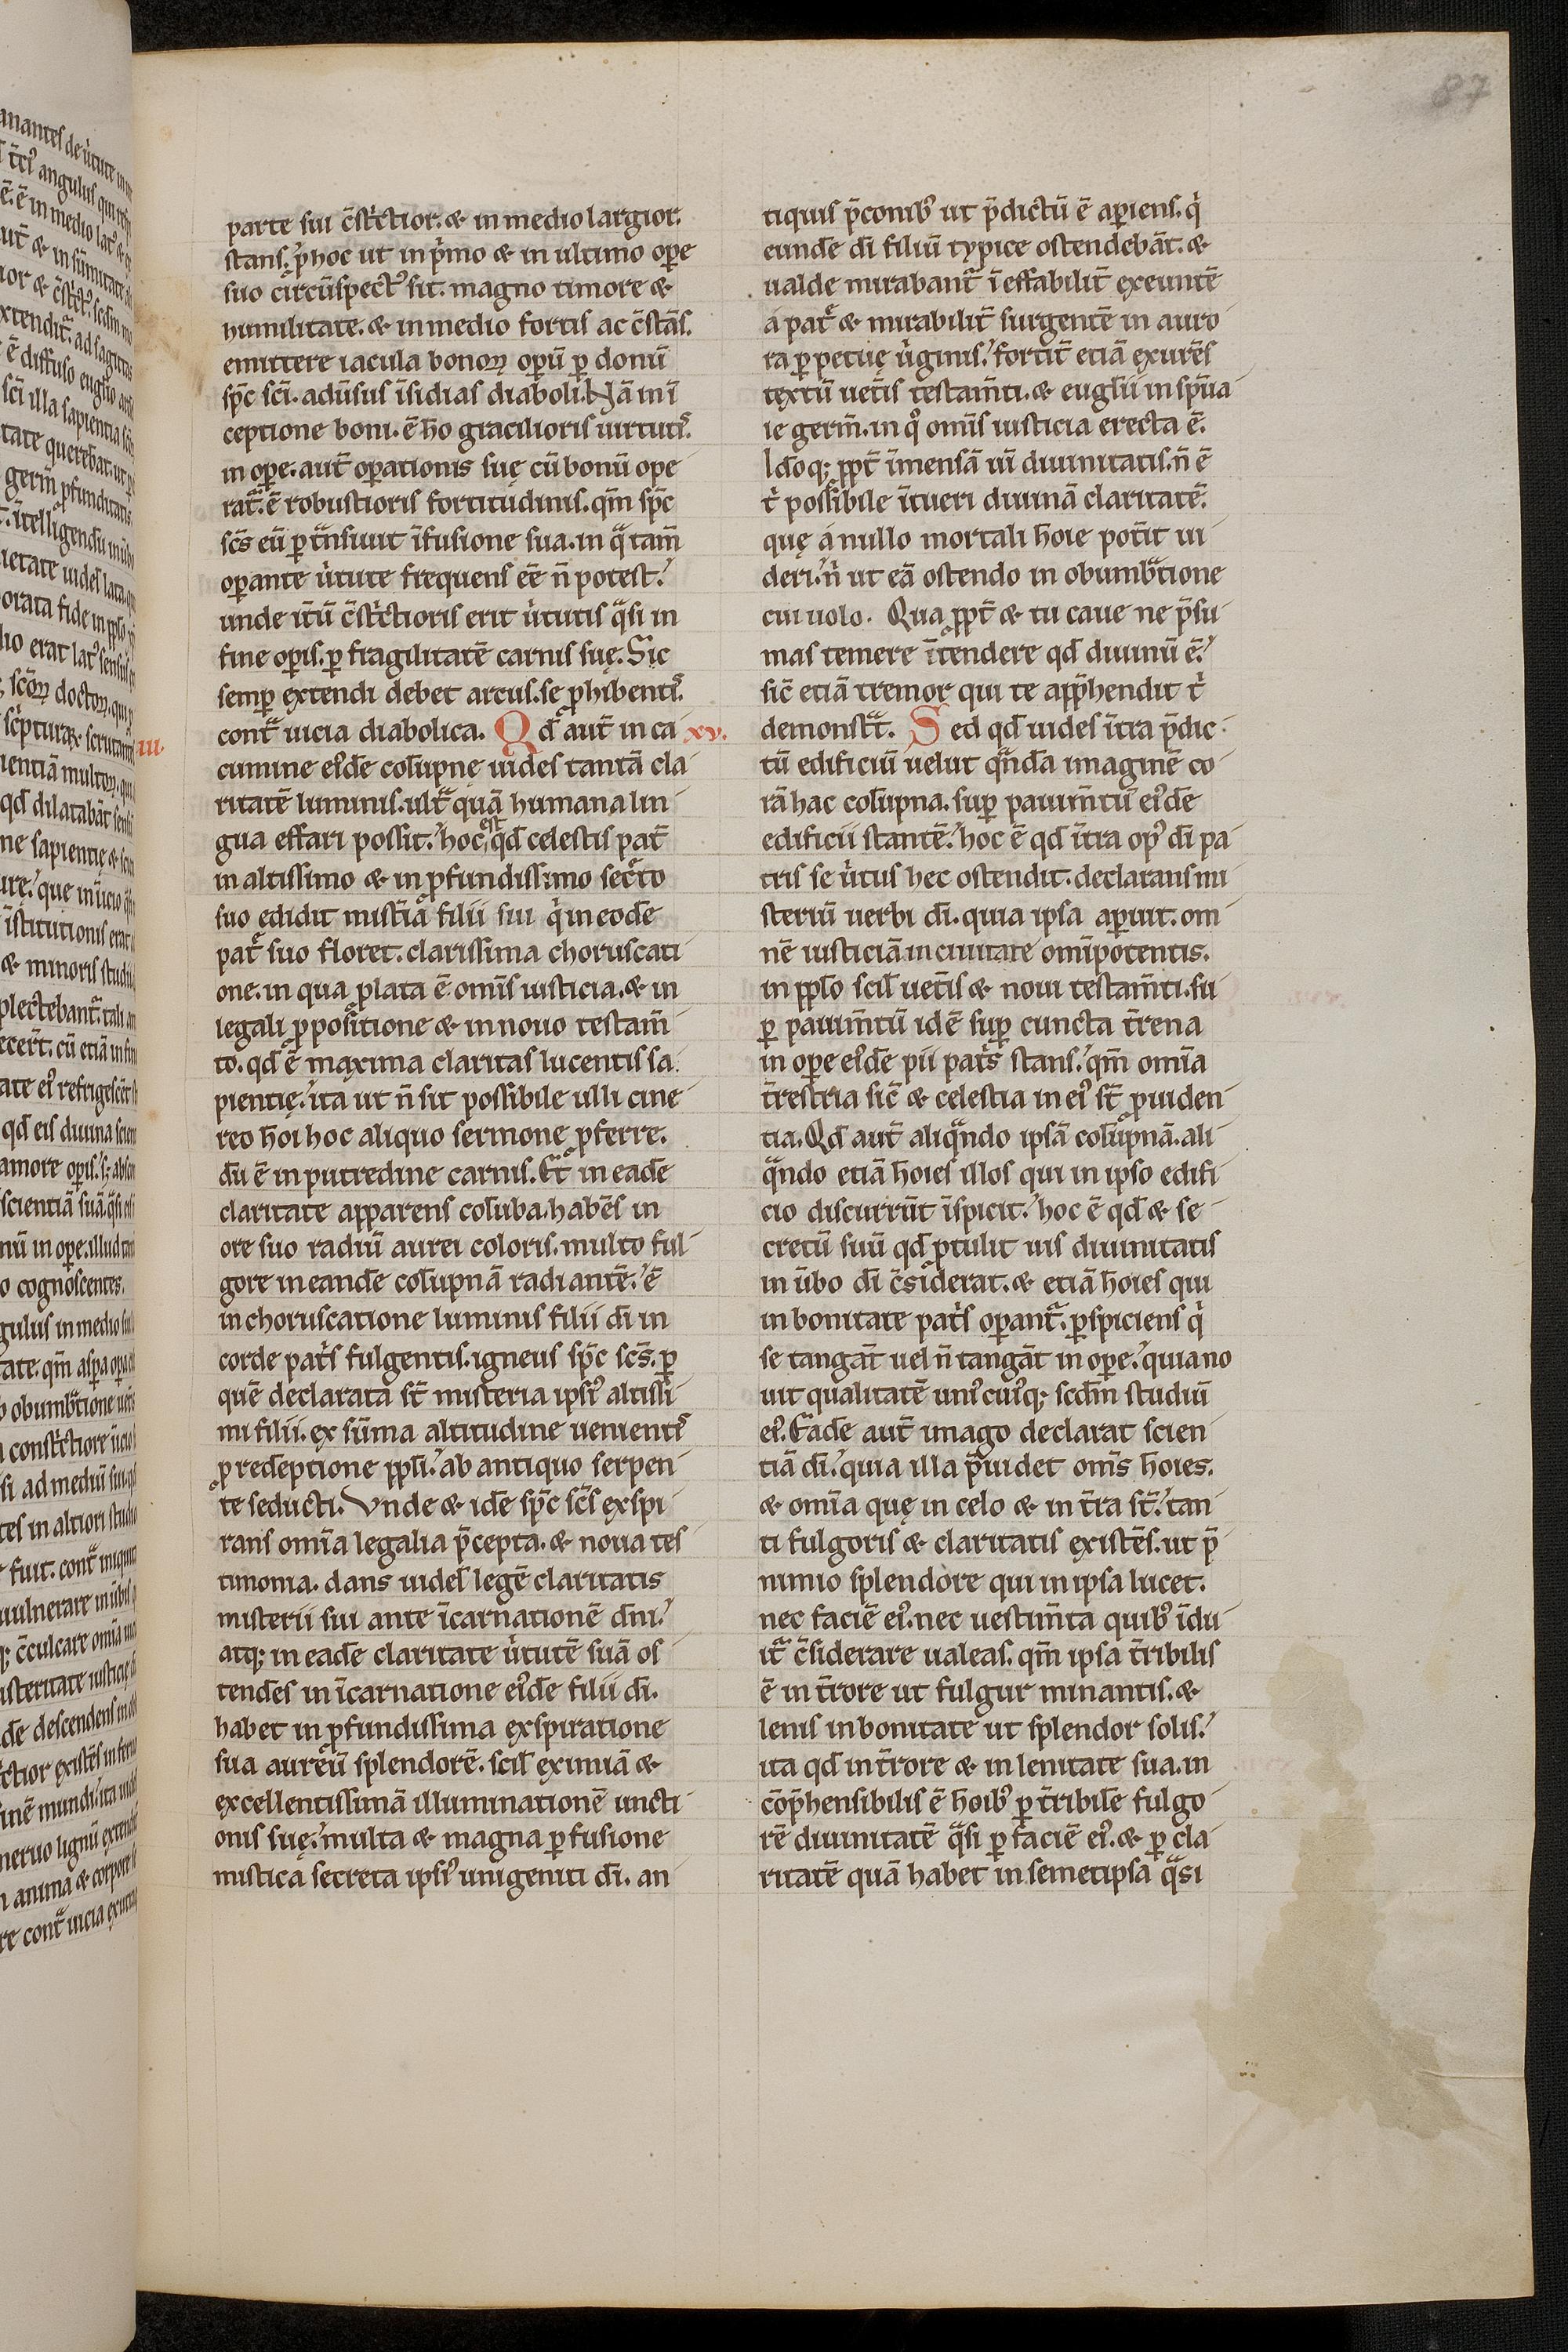 87
parte sui c̄st͛ctior. & in medio largior.
stans.ˊ p hoc ut in p͛mo & in ultimo ope
suo circūspect᷒ sit. magno timore &
humilitate. & in medio fortis ac c̄stās.
emittere iacula bonoꝝ opū ꝑ donū
sp̄c sc̄i. adūsus īsidias diaboli. Nā in ī
ceptione boni. ē ho gracilioris uirtuti᷒.
in ope. aut̄ operationis suę cū bonū ope
rat͛. ē robustioris fortitudinis. qm̄ sp̄c
sc̄s eū ꝑ t͛nsiuit īfusione sua. in q͛ tam̄
operante u͛tute frequens ee͞ n̄ potest.ˊ
unde itū c̄st͛ctioris erit u͛tutis q͛si in
fine opis. ꝑ fragilitatē carnis suę. Sic
semꝑ extendi debet arcus. se ꝓhibenti᷒
cont͛ uicia diabolica. Qd̄ aut̄ in ca xv.
cumine ei᷒dē colūpne uides tantā cla
ritatē luminis. ult͛ quā humana lin
gua effari possit.ˊ hoc est qd̄ celestis pat̄
in altissimo & in ꝓfundissimo sec͛to
suo edidit mist͛iā filii sui q͛ in eodē
pat͛ suo floret. clarissima choruscati
one. in qua ꝓlata ē omīs iusticia. & in
legali ꝓpositione & in nouo testam̄
to. qd̄ ē maxima claritas lucentis sa
pientię.ˊ ita ut n̄ sit possibile ulli cine
reo hoi hoc aliquo sermone ꝓferre.
dū ē in putredine carnis. Et in eadē
claritate apparens colūba. habēs in
ore suo radiū aurei coloris. multo ful
gore in eandē colūpnā radiantē.ˊ ē
in choruscatione luminis filii di̅ in
corde pat͛s fulgentis. igneus sp̄c sc̄s. ꝑ
quē declarata st̄ misteria ipsi᷒ altissi
mi filii. ex sūma altitudine uenienti᷒
ꝓ redēptione ppl̄i.ˊ ab antiquo serpen
te seducti. Vnde & idē sp̄c sc̄s exspi
rans omīa legalia p̄cepta. & noua tes
timonia. dans uidel̄ legē claritatis
misterii sui ante īcarnationē dn̄i.ˊ
atq; in eadē claritate u͛tutē suā os
tendēs in īcarnatione ei᷒dē filii di̅.
habet in ꝓfundissima exspiratione
sua aureū splendorē. scil̄ eximiā &
excellentissimā illuminationē uncti
onis suę.ˊ multa & magna ꝑfusione
mistica secreta ipsi᷒ unigeniti di̅. an
tiquis p̄conib᷒ ut p̄dictū ē aperiens. q͛
eundē di̅ filiū typice ostendebāt. &
ualde mirabant͛ īeffabilit̄ exeuntē
a pat͛ & mirabilit̄ surgentē in auro
ra ꝑpetuę u͛ginis.ˊ fortit̄ etiā exurēs
textū uet̄is testam̄ti. & eugl̄ii in sp̄ua
le germ̄. in q᷒ omīs iusticia erecta ē.
Idoq; ppt̄ īmensā uī diuinitatis. n̄ ē
t͛ possibile ītueri diuinā claritatē.
quę a nullo mortali hoie pot̄it ui
deri.ˊ n͛ ut eā ostendo in obumb͛tione
cui uolo. Qua ppt̄ & tu caue ne p̄su
mas temere ītendere qd̄ diuinū ē.ˊ
sic̄ etiā tremor qui te app̄hendit t͛
demonst͛t. Sed qd̄ uides īt͛a p̄dic
tū edificiū uelut q͛ndā imaginē co
rā hac colūpna. suꝑ pauim̄tū ei᷒dē
edificii stantē.ˊ hoc ē qd̄ īt͛a op᷒ di̅ pa
tris se u͛tus hec ostendit. declarans mi
steriū uerbi di̅. quia ipsa aperuit. om
nē iusticiā in ciuitate omīpotentis.
in ppl̄o scil̄ uet̄is & noui testam̄ti. su
ꝑ pauim̄tū idē suꝑ cuncta t̄rena
in ope ei᷒dē pii pat͛s stans.ˊ qm̄ omīa
t̄restria sic̄ & celestia in ei᷒ st̄ ꝓuiden
tia. Qd̄ aut̄ aliq͛ndo ipsā colūpnā. ali
q͛ndo etiā hoies illos qui in ipso edifi
cio discurrūt īspicit.ˊ hoc ē qd̄ & se
cretū suū qd̄ ꝓtulit uis diuinitatis
in ūbo di̅ c̄siderat. & etiā hoies qui
in bonitate pat͛s operant͛. ꝑspiciens q͛
se tangāt uel n̄ tangāt in ope.ˊ quia no
uit qualitatē uni᷒cui᷒q; scdm̄ studiū
ei᷒. Eadē aut̄ imago declarat scien
tiā di̅.ˊ quia illa p̄uidet om̄s hoies.
& omīa quę in celo & in t̄ra st̄.ˊ tan
ti fulgoris & claritatis existēs. ut p̄
nimio splendore qui in ipsa lucet.
nec faciē ei᷒. nec uestim̄ta quib᷒ īdu
it͛ c̄siderare ualeas. qm̄ ipsa t̄ribilis
ē in t̄rore ut fulgur minantis. &
lenis in bonitate ut splendor solis.ˊ
ita qd̄ in t̄rore & in lenitate sua. in
c̄op̄hensibilis ē hoib᷒ ꝑ t̄ribilē fulgo
rē diuinitatē q͛si ꝑ faciē ei᷒. & ꝑ cla
ritatē quā habet in semetipsa q͛si